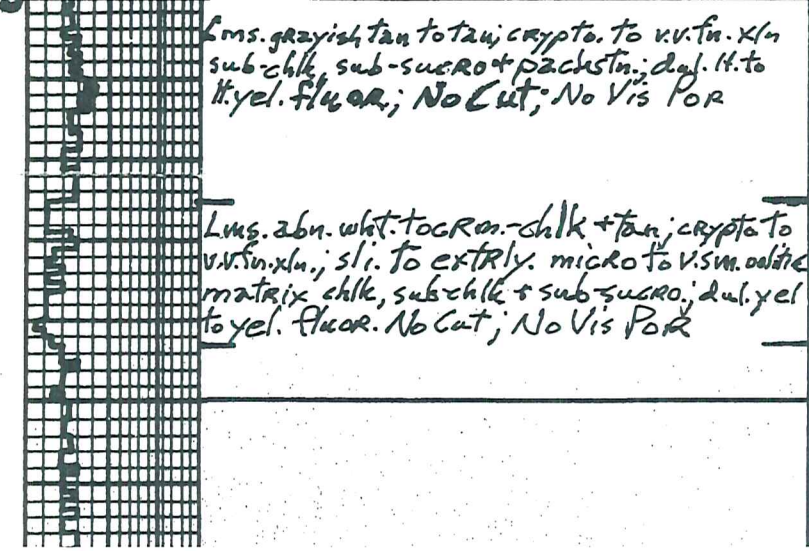 Lms. grayish tan to tan; crypto. to v.v.fn. xln
sub-chlk, sub-sucro + packstn.; dul. lt. to
lt. yel. fluor.; No Cut; No Vis Por
Lms. abn. wht. to crm.-chlk + tan; crypto to
v.v.fn.xln.; sli. to extrly. micro to v.sm. oolitic
matrix chlk, sub-chlk + sub-sucro.; dul. yel
to yel. fluor. No Cut; No Vis Por